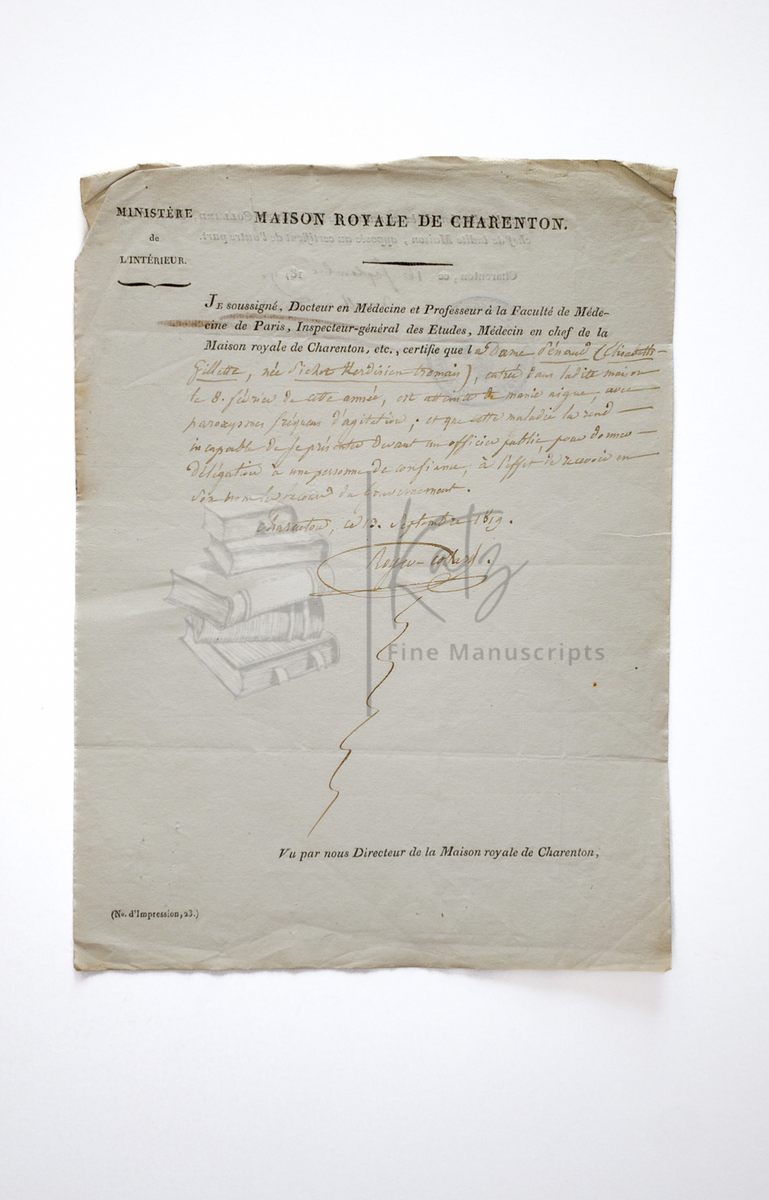 MINISTÈRE
de
L'INTÉRIEUR.
MAISON ROYALE DE CHARENTON.
JE soussigné, Docteur en Médecine et Professeur à la Faculté de Méde-
cine de Paris, Inspecteur-général des Etudes, Médecin en chef de la
Maison royale de Charenton, etc., certifie que l Dame Pénaud (Elisabeth
Gillette, née Pichot ), entrée dans ladite maison
le 8. février de cette année, est atteinte de manie aigue, avec
paroxysmes fréquens d'agitation; et que cette maladie la rend
incapable de se présenter devant un officier public, pour donner
délégation à une personne de confiance, à l'effet de recevoir en
son nom les secours du Gouvernement.
Charenton, ce 13. Septembre 1819.
Royer-Collard.
Katz
Fine Manuscripts
Vu par nous Directeur de la Maison royale de Charenton,
(No. d'Impression, 23.)